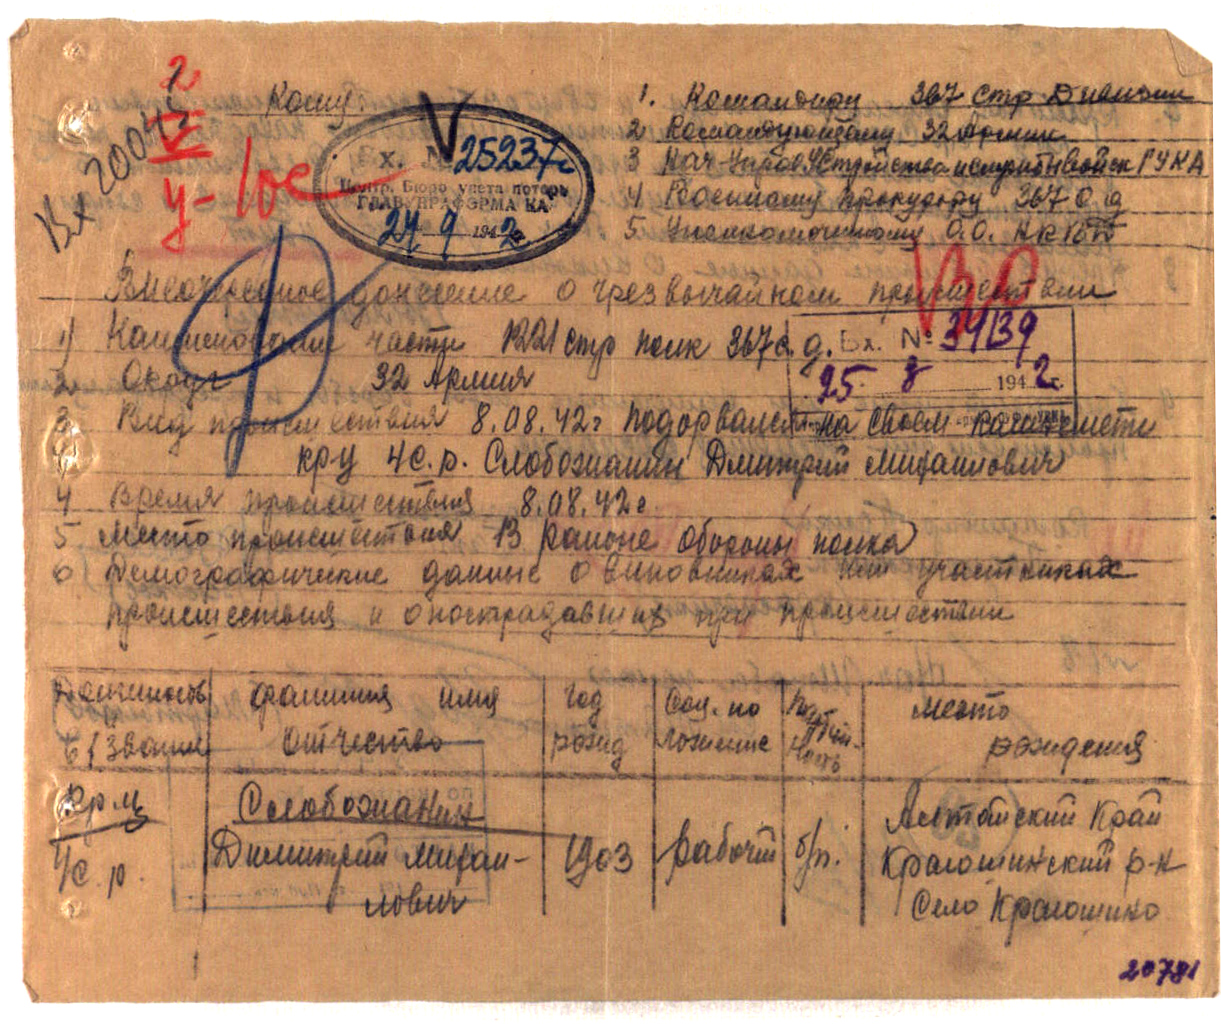 2
V
у-10с
Вх 20042
Кому:
1. Командиру 367 стр Дивизии
2 Командующему 32 Армии
3 Нач. Управ. Устройства и службы войск ГУКА
4 Военному прокурору 367 с.д
5. Уполномоченному О.О. НКВД
Вх. № 25237с
Центр. Бюро учета потерь
ГЛАВУПРАФОРМА КА
24 9 1942
Внеочередное донесение о чрезвычайном происшествии
ВО
1) Наименование части 1221 стр полк 367 с.д.
Вх. № 34139
25. 8 1942 г.
2. Округ 32 Армия
3 Вид происшествия 8.08.42г подорвался на своем
кр-ц 4с.р. Слобожанин Дмитрий Михайлович
4 Время происшествия 8.08.42г
5 Место происшествия В районе обороны полка
6 Демографические данные о виновниках или участниках
происшествия и о пострадавших при происшествии
Должность фамилия имя год Соц. по Партий- место
б/звание отчество рожд ложение ность рождения
Кр-ц Слобожанин Алтайский Край
4с.р. Димитрий Михай- 1903 рабочий б/п. Краюшкинский р-н
лович Село Краюшкино
20781